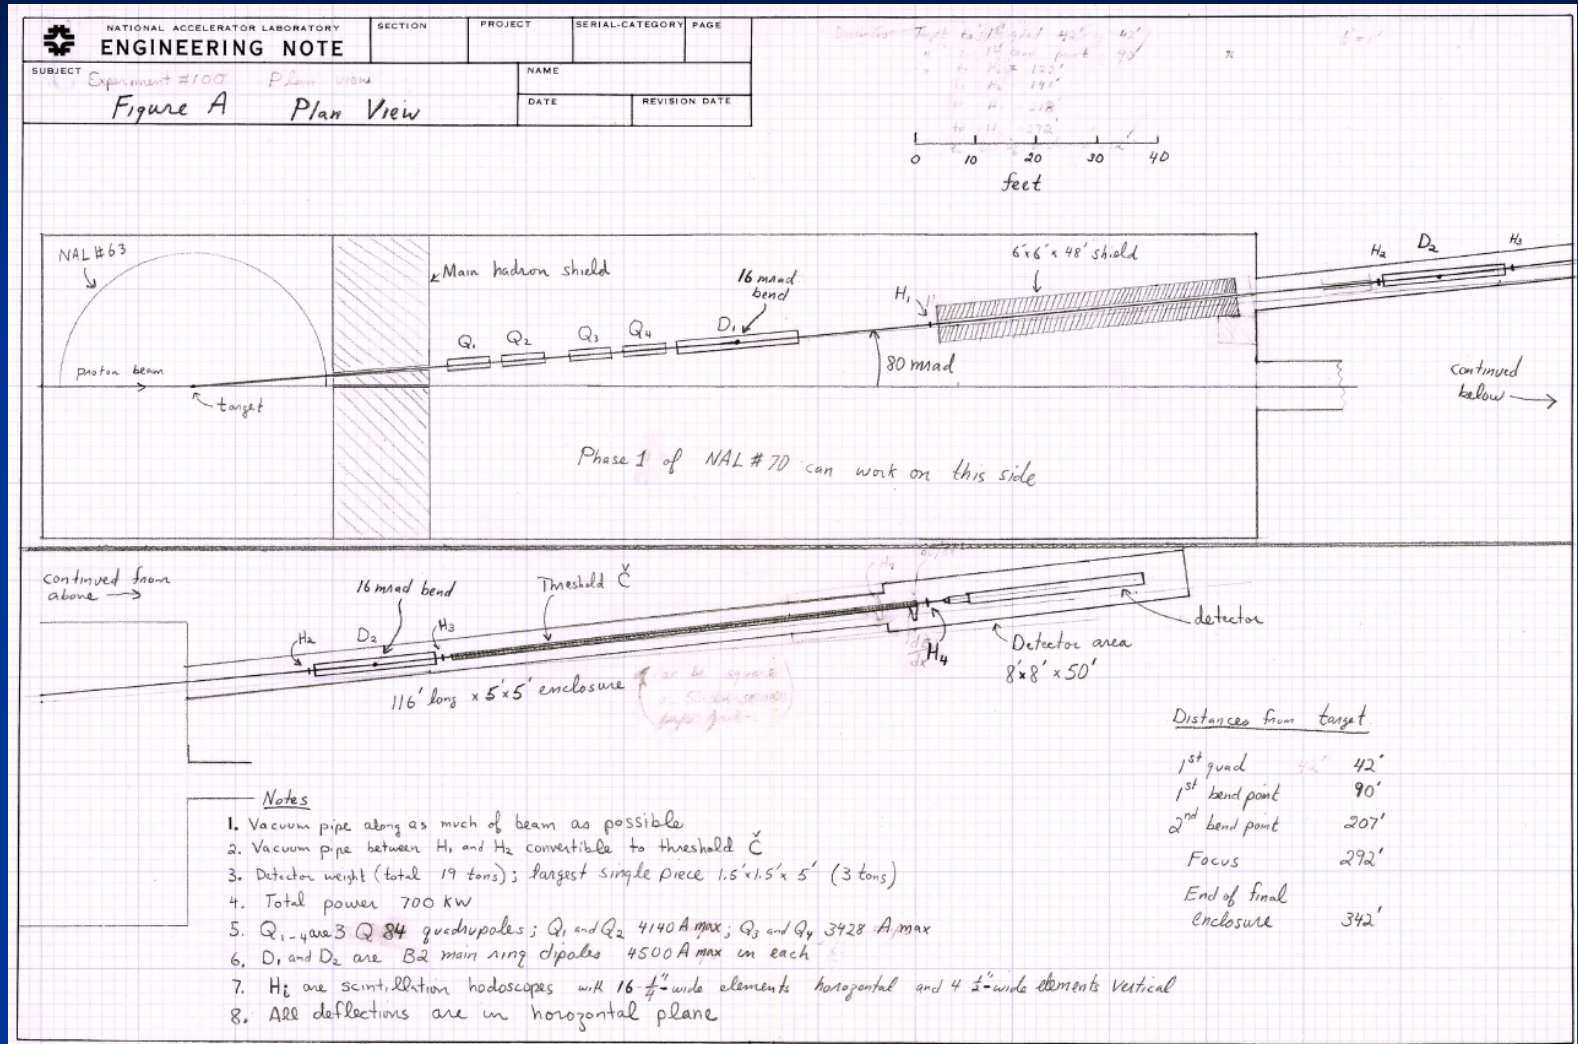 NATIONAL ACCELERATOR LABORATORY
ENGINEERING NOTE
SECTION
PROJECT
SERIAL-CATEGORY
PAGE
SUBJECT
Experiment #100 Plan view
Figure A Plan View
NAME
DATE
REVISION DATE
Target to 1st quad 42' 42'
bend point 90'
0 10 20 30 40
feet
NAL #63
Main hadron shield
16 mrad
bend
6'x6' x 48' shield
H2
D2
H3
H1
Q1
Q2
Q3
Q4
D1
80 mrad
proton beam
target
continued
below →
Phase 1 of NAL #70 can work on this side
continued from
above →
16 mrad bend
Threshold Č
H2
D2
H3
detector
H4
Detector area
8'x8' x 50'
116' long x 5'x5' enclosure
Distances from target
1st quad 42'
1st bend point 90'
2nd bend point 207'
Focus 292'
End of final
enclosure 342'
Notes
1. Vacuum pipe along as much of beam as possible
2. Vacuum pipe between H1 and H2 convertible to threshold Č
3. Detector weight (total 19 tons); largest single piece 1.5'x1.5'x 5' (3 tons)
4. Total power 700 kW
5. Q1-4 are 3 Q 84 quadrupoles; Q1 and Q2 4140 A max; Q3 and Q4 3428 A max
6. D1 and D2 are B2 main ring dipoles 4500 A max in each
7. Hi are scintillation hodoscopes with 16 - 1/4"-wide elements horozontal and 4 1/2"-wide elements vertical
8. All deflections are in horozontal plane